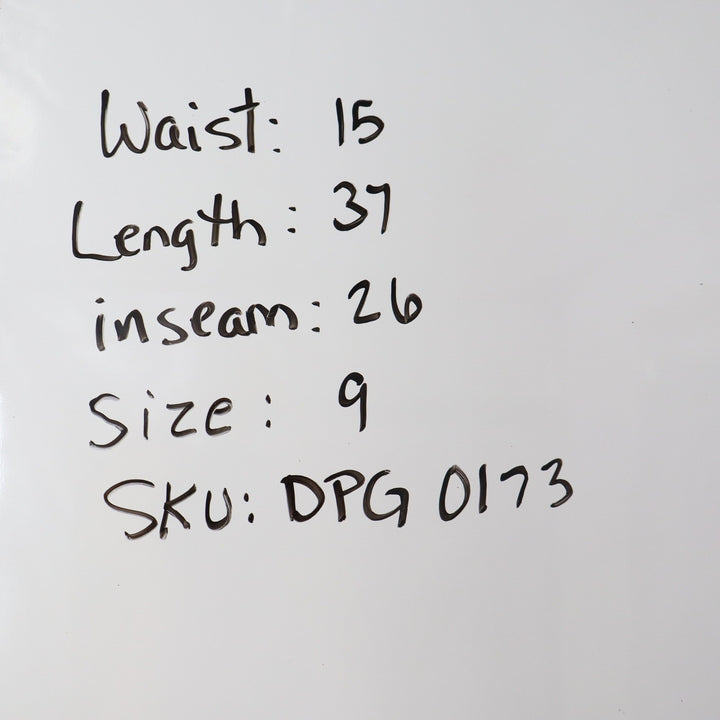 Waist: 15
Length: 37
inseam: 26
Size: 9
SKU: DPG 0173